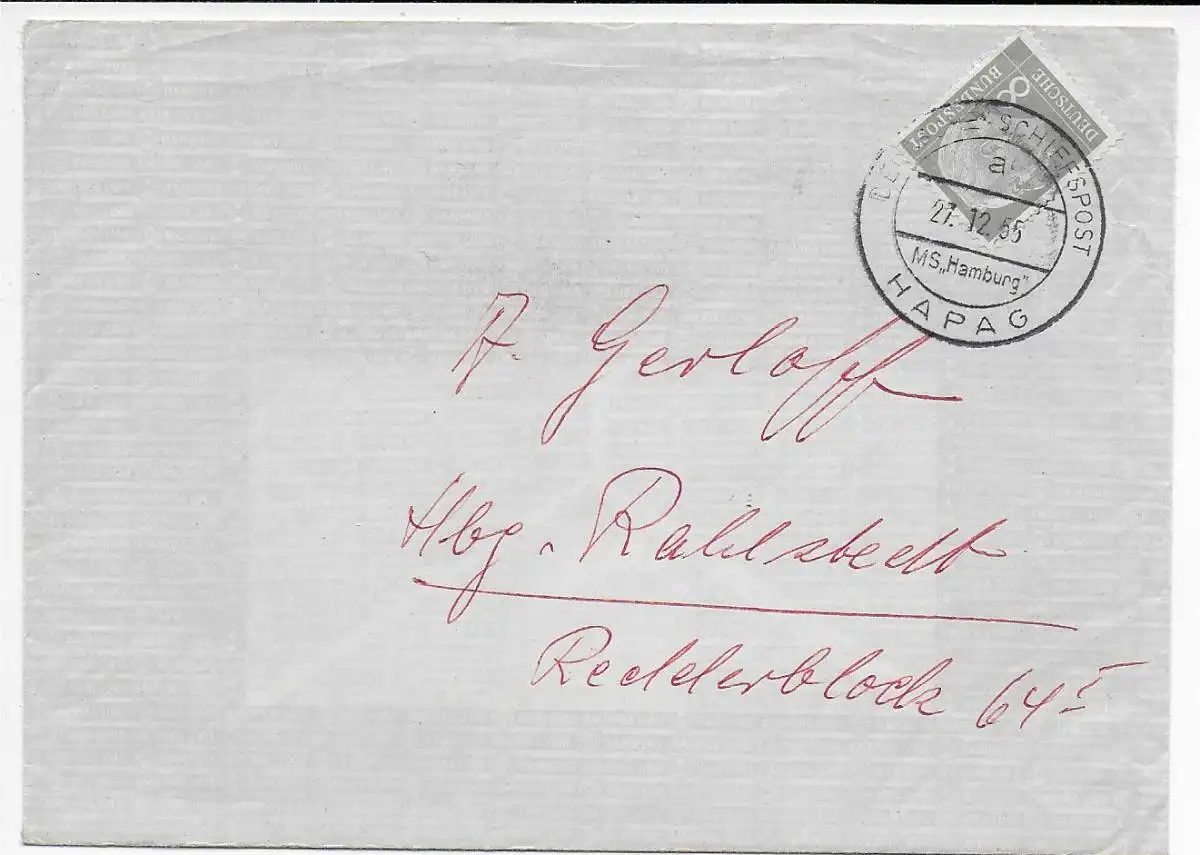 DEUTSCHE
BUNDESPOST
8
DEUTSCHE SCHIFFSPOST
a
27.12.56
MS„Hamburg"
HAPAG
A. Gerloff
Hbg. Rahlstedt
Redderblock 64 I